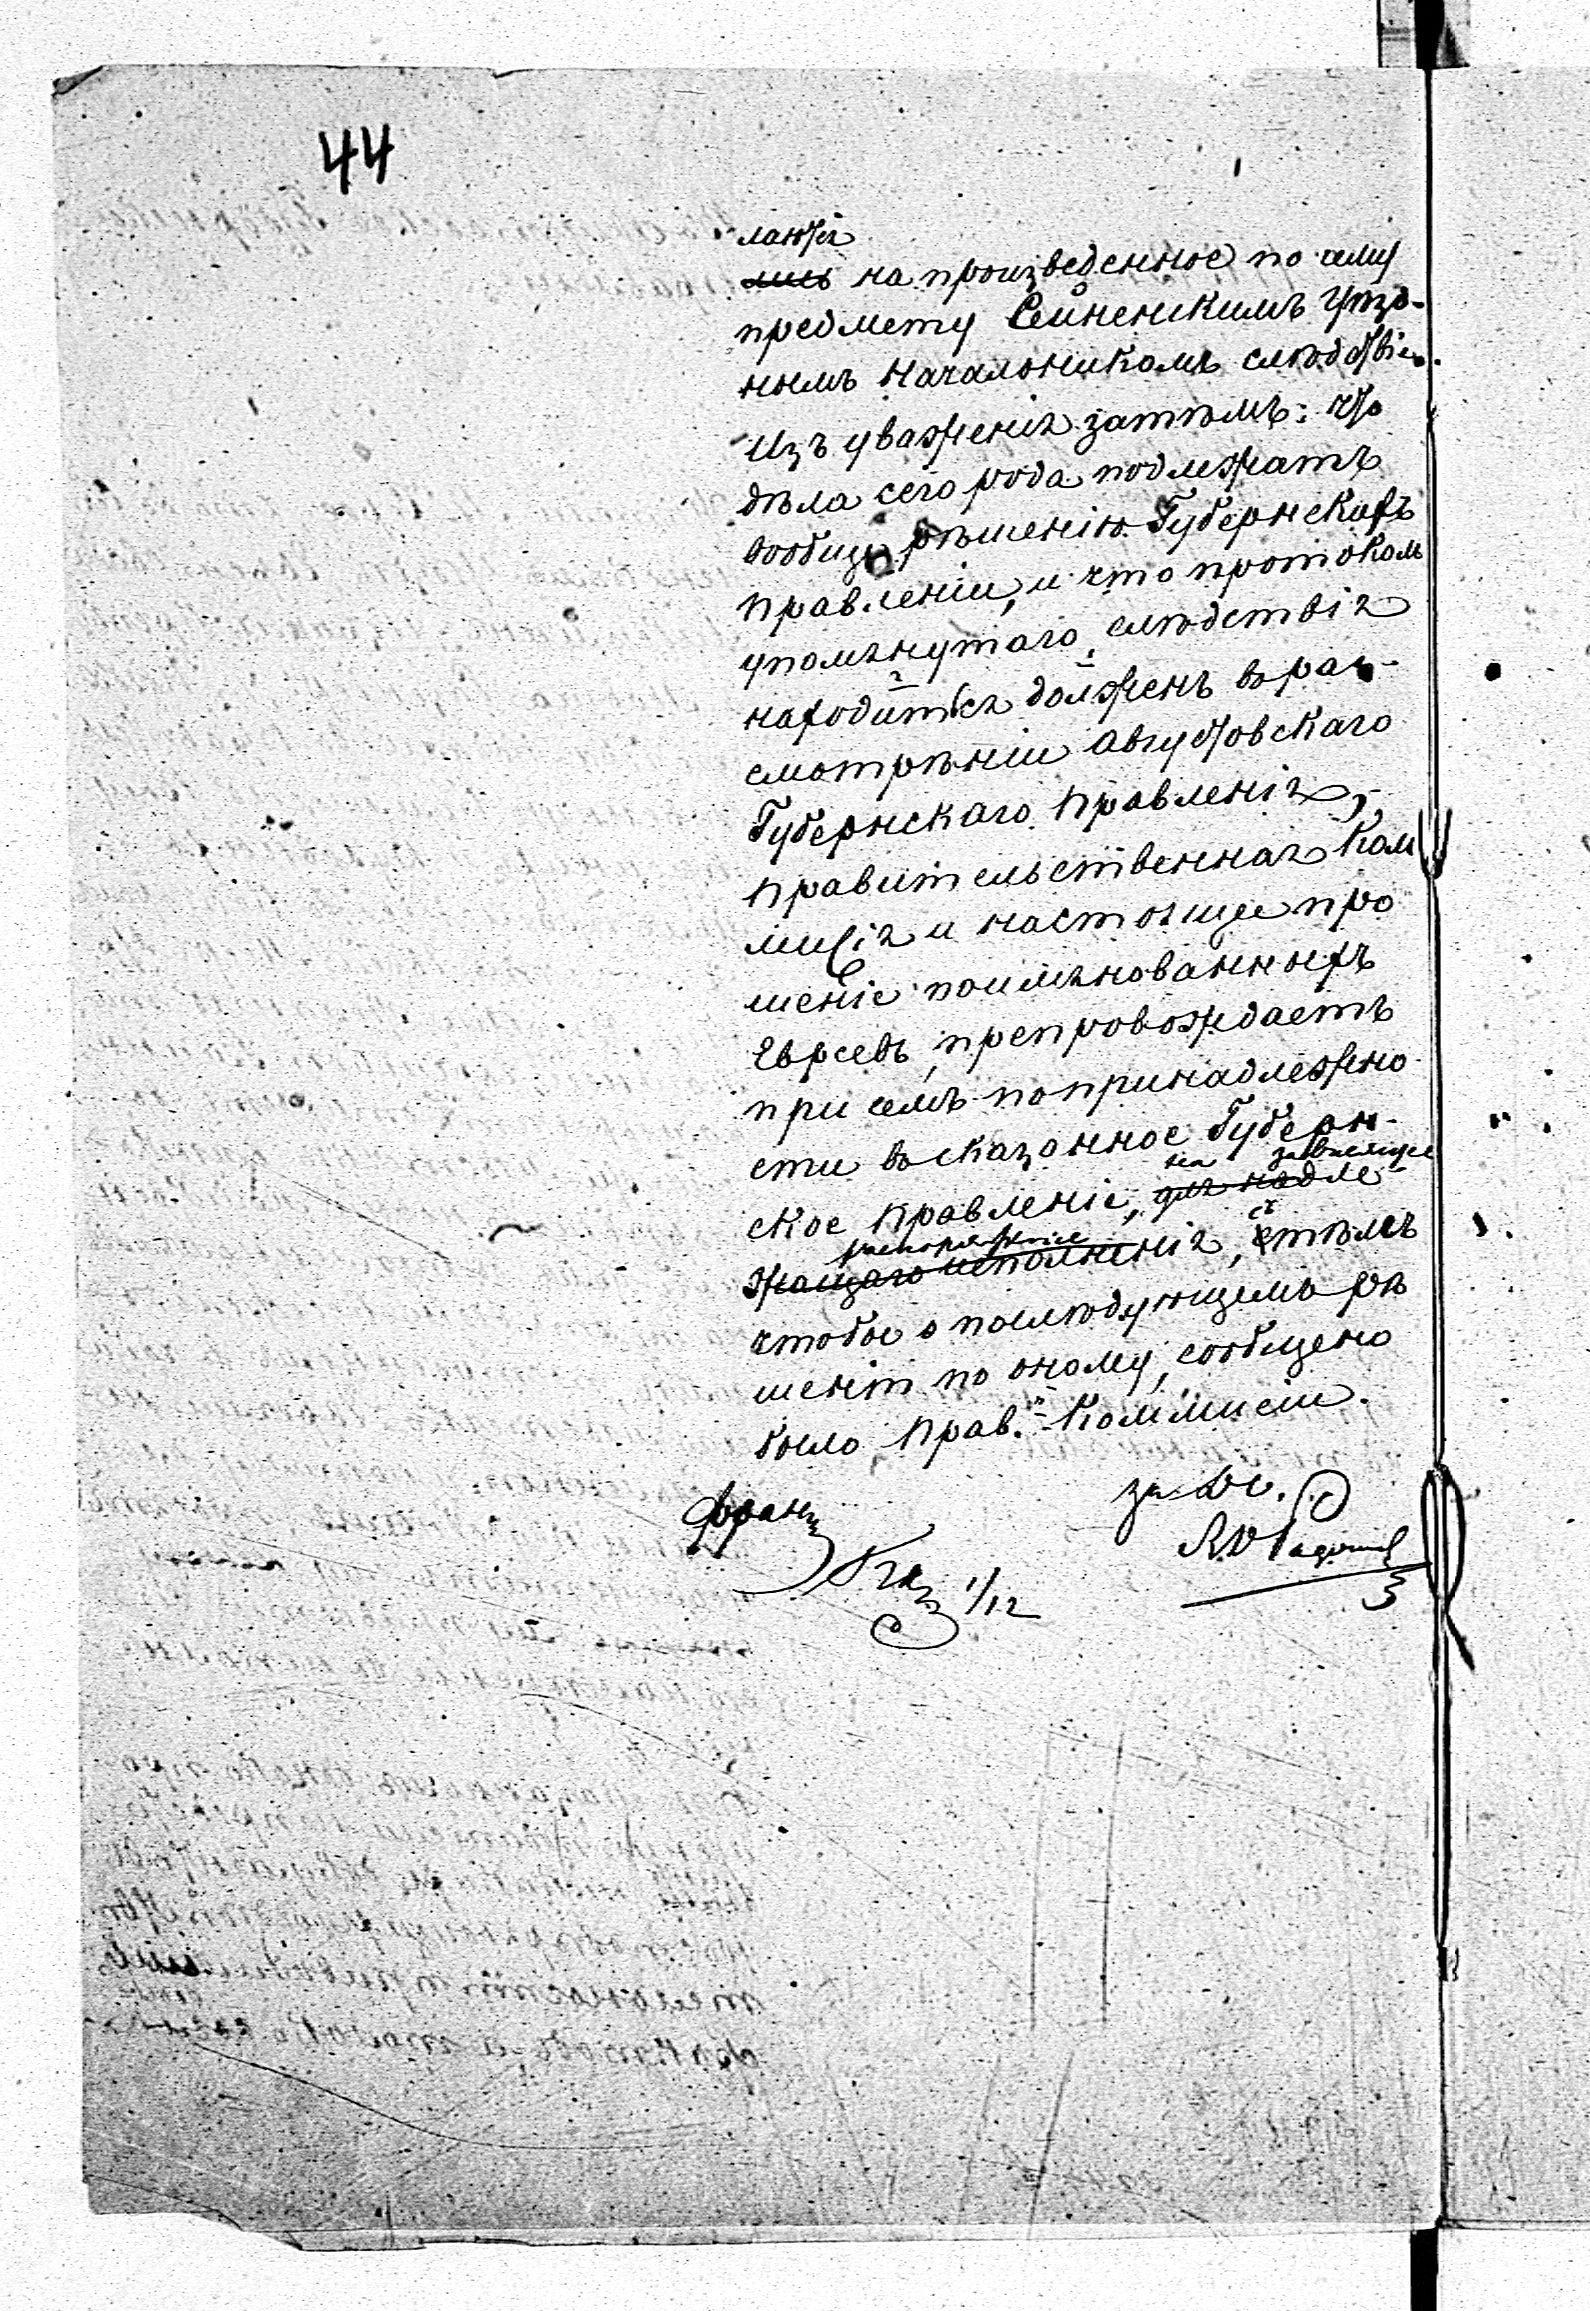 44
лаются
лись на произведенное по сему
предмету Сейненскимъ Уѣзд-
нымъ Начальникомъ слѣдствіе.
Изъ уваженія затѣмъ: что
дѣла сего рода подлежатъ
вообще рѣшенію Губернскихъ
Правленіи, и что протоколъ
упомянутаго слѣдствія
находится долженъ въ раз-
смотрѣніи Августовскаго
Губернскаго Правленія,
Правительственная Ком
мисія и настоящее про
шеніе поимянованныхъ
Евреевъ, препровождаетъ
при семъ по принадлежно
сти въ сказанное Губерн-
на зависящее
ское Правленіе, для надле
распоряженіе съ
жащаго исполненія, стѣмъ
чтобы о послѣдующемъ рѣ
шеніи по оному, сообщено
было Прав.й Коммисіи.
за Дс.
Франц
1/12